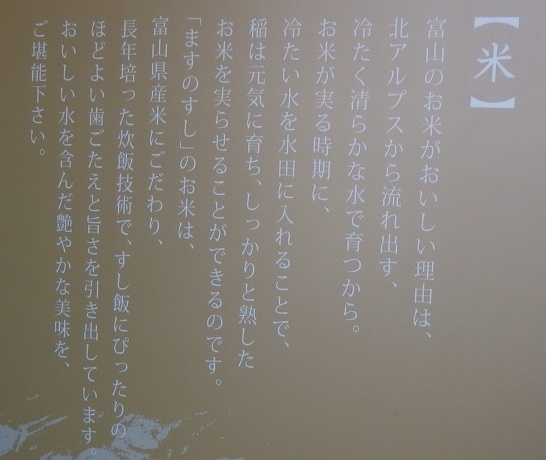 【米】
富山のお米がおいしい理由は、
北アルプスから流れ出す、
冷たく清らかな水で育つから。
お米が実る時期に、
冷たい水を水田に入れることで、
稲は元気に育ち、しっかりと熟した
お米を実らせることができるのです。
「ますのすし」のお米は、
富山県産米にこだわり、
長年培った炊飯技術で、すし飯にぴったりの
ほどよい歯ごたえと旨さを引き出しています
おいしい水を含んだ艶やかな美味を、
ご堪能下さい。